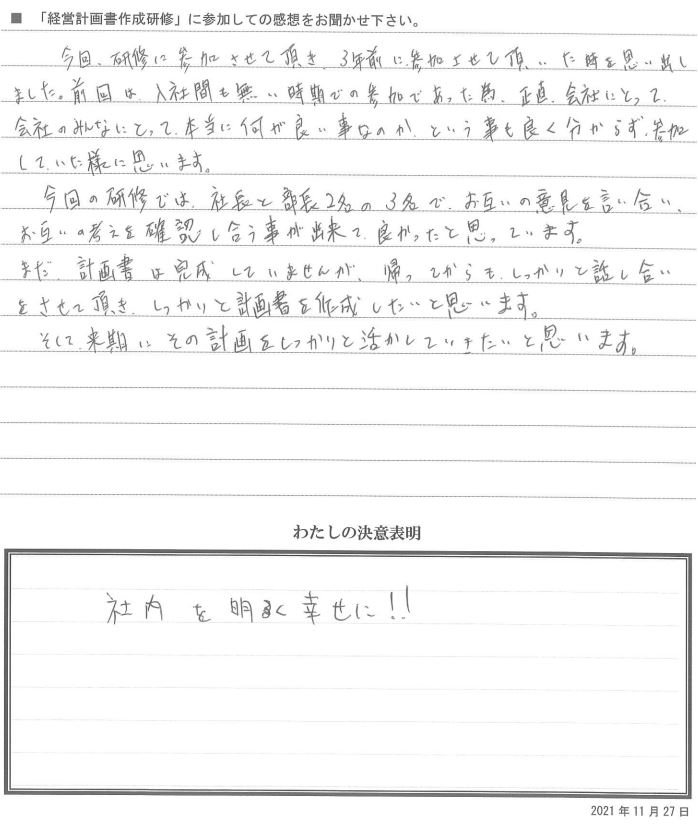 ■ 「経営計画書作成研修」に参加しての感想をお聞かせ下さい。
今回、研修に参加させて頂き、3年前に参加させて頂いた時を思い出し
ました。前回は、入社間も無い時期での参加であった為、正直、会社にとって、
会社のみんなにとって、本当に何が良い事なのか、という事も良く分からず、参加
していた様に思います。
今回の研修では、社長と部長2名の3名で、お互いの意見を言い合い、
お互いの考えを確認し合う事が出来て、良かったと思っています。
まだ、計画書は完成していませんが、帰ってからも、しっかりと話し合い
をさせて頂き、しっかりと計画書を作成したいと思います。
そして、来期にその計画をしっかりと活かしていきたいと思います。
わたしの決意表明
社内を明るく幸せに!!
2021年11月27日